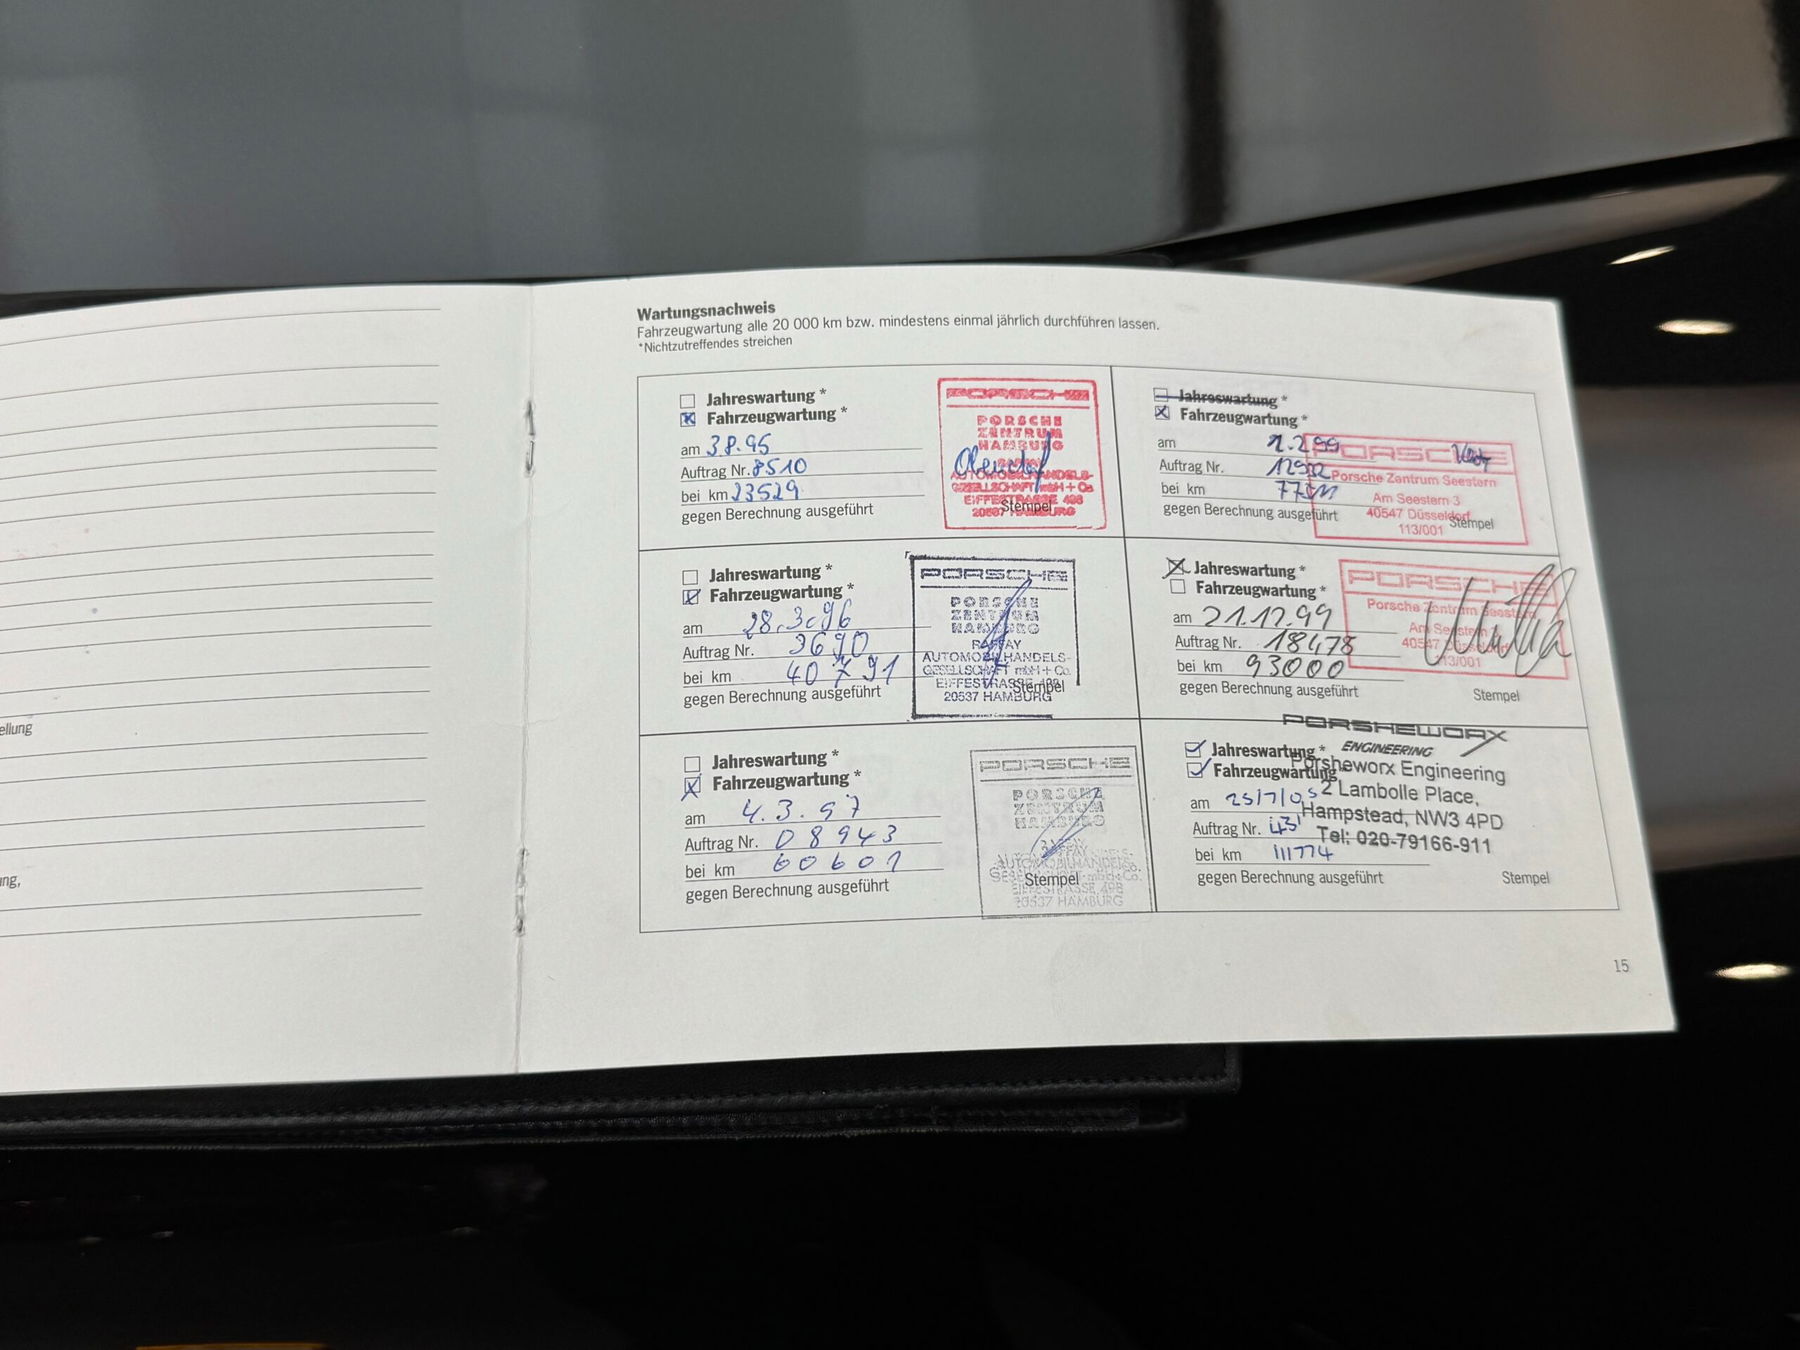 ellung
ng,
Wartungsnachweis
Fahrzeugwartung alle 20 000 km bzw. mindestens einmal jährlich durchführen lassen.
*Nichtzutreffendes streichen
Jahreswartung *
Fahrzeugwartung *
am 3.8.95
Auftrag Nr. 8510
bei km 23529
gegen Berechnung ausgeführt
PORSCHE
PORSCHE
ZENTRUM
HAMBURG
AUTOMOBILHANDELS-
GESELLSCHAFT mbH + Co
EIFFESTRASSE 498
20537 HAMBURG
Stempel
Jahreswartung *
Fahrzeugwartung *
am 28.3.96
Auftrag Nr. 3690
bei km 40791
gegen Berechnung ausgeführt
PORSCHE
PORSCHE
ZENTRUM
HAMBURG
RAFFAY
AUTOMOBILHANDELS-
GESELLSCHAFT mbH + Co.
EIFFESTRASSE 498
20537 HAMBURG
Stempel
Jahreswartung *
Fahrzeugwartung *
am 4.3.97
Auftrag Nr. 08943
bei km 60601
gegen Berechnung ausgeführt
PORSCHE
PORSCHE
ZENTRUM
HAMBURG
RAFFAY
AUTOMOBILHANDELS-
GESELLSCHAFT mbH + Co.
EIFFESTRASSE 498
20537 HAMBURG
Stempel
Jahreswartung *
Fahrzeugwartung *
am 1.2.99
Auftrag Nr.
bei km
gegen Berechnung ausgeführt
PORSCHE
Porsche Zentrum Seestern
Am Seestern 3
40547 Düsseldorf
113/001
Stempel
Jahreswartung *
Fahrzeugwartung *
am 21.12.99
Auftrag Nr. 18478
bei km 93000
gegen Berechnung ausgeführt
PORSCHE
Porsche Zentrum Seestern
Am Seestern 3
40547 Düsseldorf
113/001
Stempel
Jahreswartung *
Fahrzeugwartung *
am 25/7/05
Auftrag Nr. 431
bei km 111774
gegen Berechnung ausgeführt
PORSHEWORX
ENGINEERING
Porsheworx Engineering
2 Lambolle Place,
Hampstead, NW3 4PD
Tel: 020-79166-911
Stempel
15